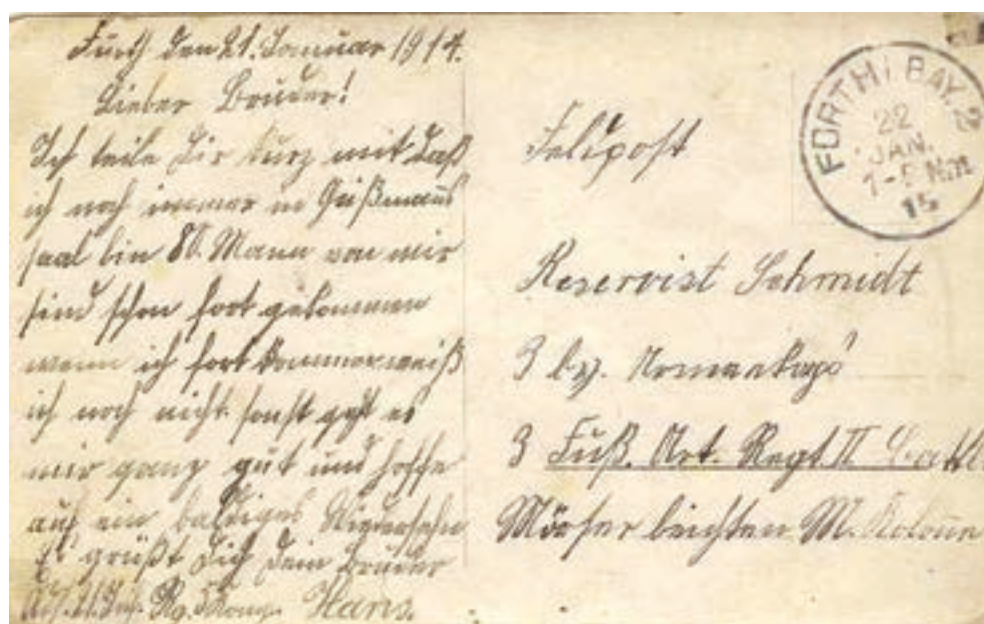 Fürth den 21. Januar 1914.
Lieber Bruder!
Ich teile Dir kurz mit daß
ich noch immer in Geißmanns
saal bin 80. Mann von mir
sind schon fort gekommen
wenn ich fort komme weiß
ich noch nicht. sonst geht es
mir ganz gut und hoffe
auf ein baldiges Wiedersehn
Es grüßt Dich Dein Bruder
Hans.
Feldpost
Reservist Schmidt
3 by. Armeekops
3 Fuß. Art. Regt II
Mörser leichten M. Kolonne
FÜRTH i BAY. 2
22
JAN.
Nm
15